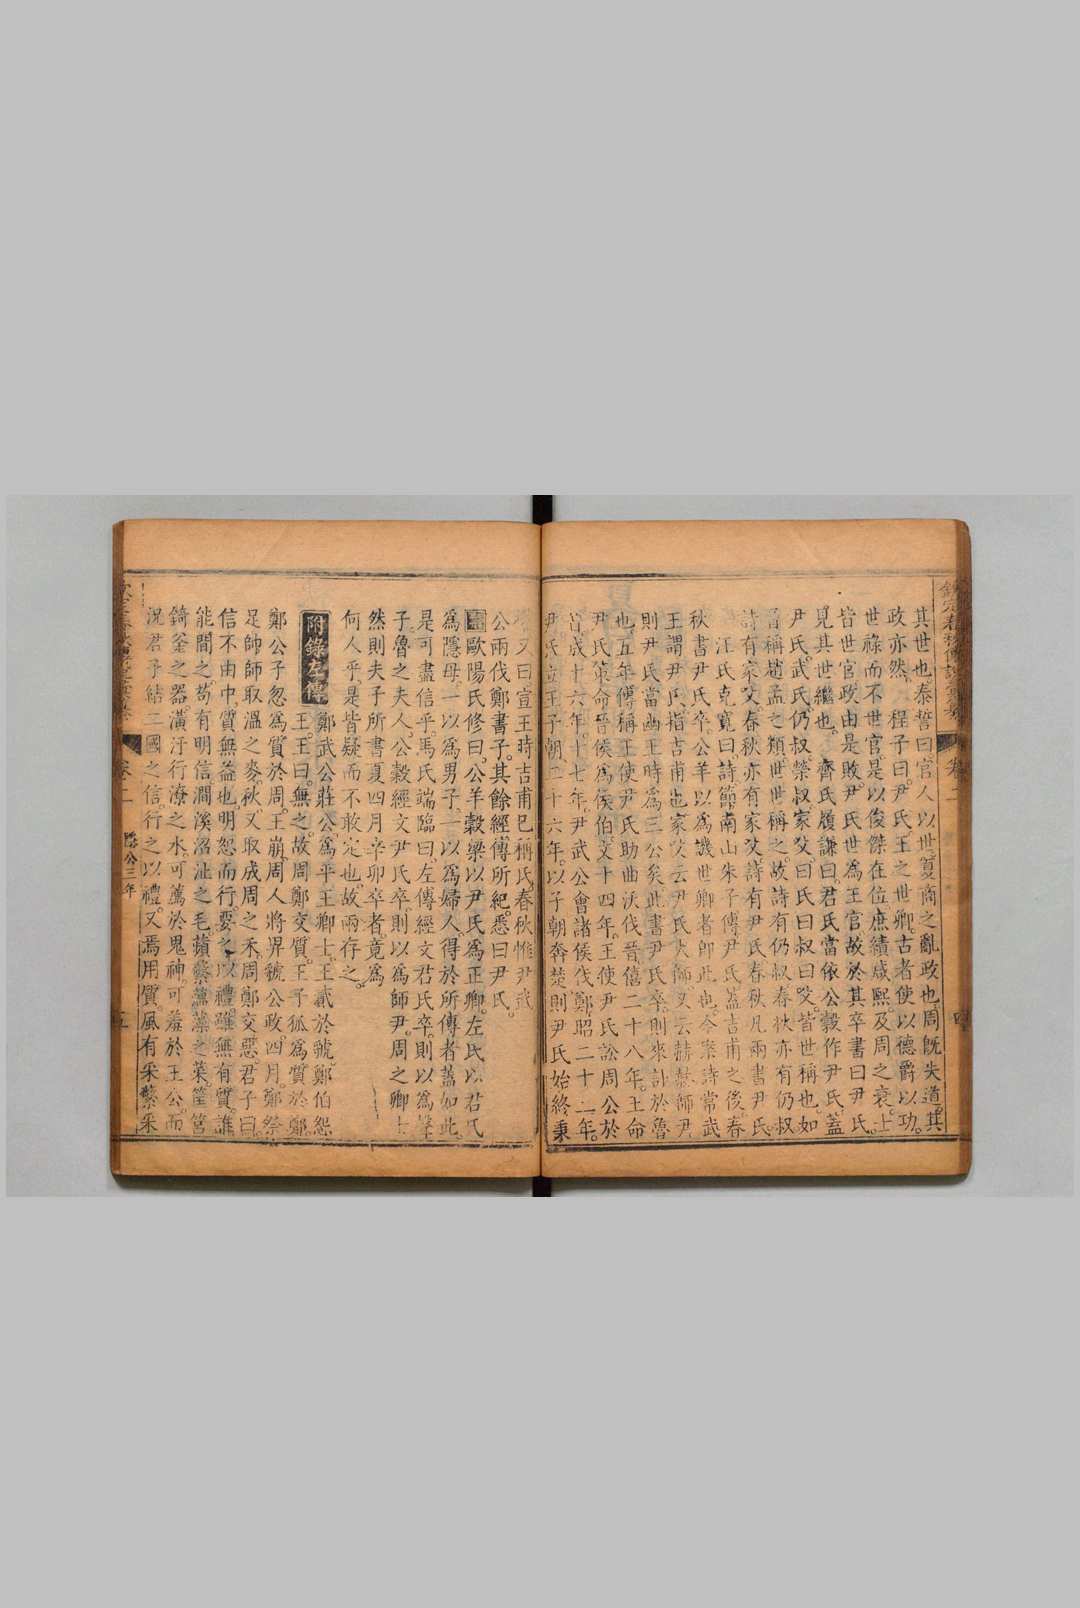 其世也泰誓曰官人以世夏商之亂政也周旣失道其
政亦然 程子曰尹氏王之世卿古者使以德爵以功
世祿而不世官是以俊傑在位庶績咸熙及周之衰士
皆世官政由是敗尹氏世為王官故於其卒書曰尹氏
見其世繼也 齊氏履謙曰君氏當依公穀作尹氏蓋
尹氏武氏仍叔榮叔家父曰氏曰叔曰父皆世稱也如
晉稱趙孟之類世世稱之故詩有仍叔春秋亦有仍叔
詩有家父春秋亦有家父詩有尹氏春秋凡兩書尹氏
汪氏克寬曰詩節南山朱子傳尹氏蓋吉甫之後春
秋書尹氏卒公羊以為譏世卿者卽此也今案詩常武
王謂尹氏指吉甫也家父云尹氏大師又云赫赫師尹
則尹氏當幽王時為三公矣此書尹氏卒則來訃於魯
也五年傳稱王使尹氏助曲沃伐晉僖二十八年王命
尹氏策命晉侯為侯伯文十四年王使尹氏訟周公於
晉成十六年十七年尹武公會諸侯伐鄭昭二十二年
尹氏立王子朝二十六年以子朝奔楚則尹氏始終秉
又曰宣王時吉甫巳稱氏春秋惟尹武
公兩伐鄭書子其餘經傳所紀悉曰尹氏
歐陽氏修曰公羊穀梁以尹氏為正卿左氏以君氏
為隱母一以為男子一以為婦人得於所傳者蓋如此
是可盡信乎馬氏端臨曰左傳經文君氏卒則以為聲
子魯之夫人公穀經文尹氏卒則以為師尹周之卿士
然則夫子所書夏四月辛卯卒者竟為
何人乎是皆疑而不敢定也故兩存之
附錄左傳 鄭武公莊公為平王卿士王貳於虢鄭伯怨
王王曰無之故周鄭交質王子狐為質於鄭
鄭公子忽為質於周王崩周人將畀虢公政四月鄭祭
足帥師取溫之麥秋又取成周之禾周鄭交惡君子曰
信不由中質無益也明恕而行要之以禮雖無有質誰
能間之苟有明信澗溪沼沚之毛蘋蘩薀藻之菜筐筥
錡釜之器潢汙行潦之水可薦於鬼神可羞於王公而
況君子結二國之信行之以禮又焉用質風有采蘩采
卷二
四
隱公三年
五